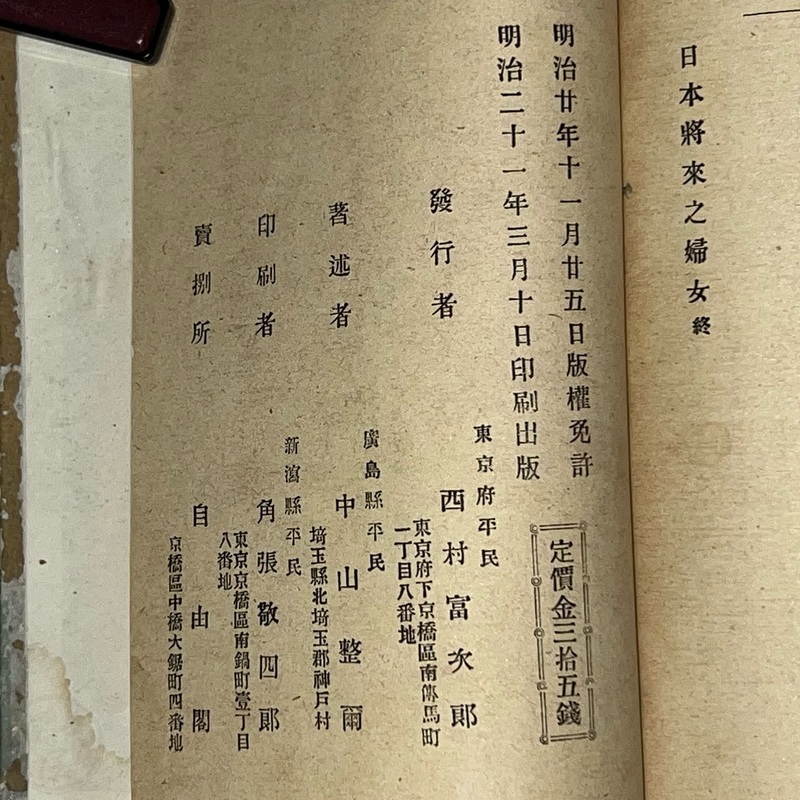 日本將來之婦女終
明治廿年十一月廿五日版權免許
明治二十一年三月十日印刷出版
定價金三拾五錢
發行者
東京府平民
西村富次郎
東京府下京橋區南傳馬町
一丁目八番地
著述者
廣島縣平民
中山整爾
埼玉縣北埼玉郡神戸村
印刷者
新瀉縣平民
角張敬四郎
東京京橋區南鍋町壹丁目
八番地
賣捌所
自由閣
京橋區中橋大鋸町四番地